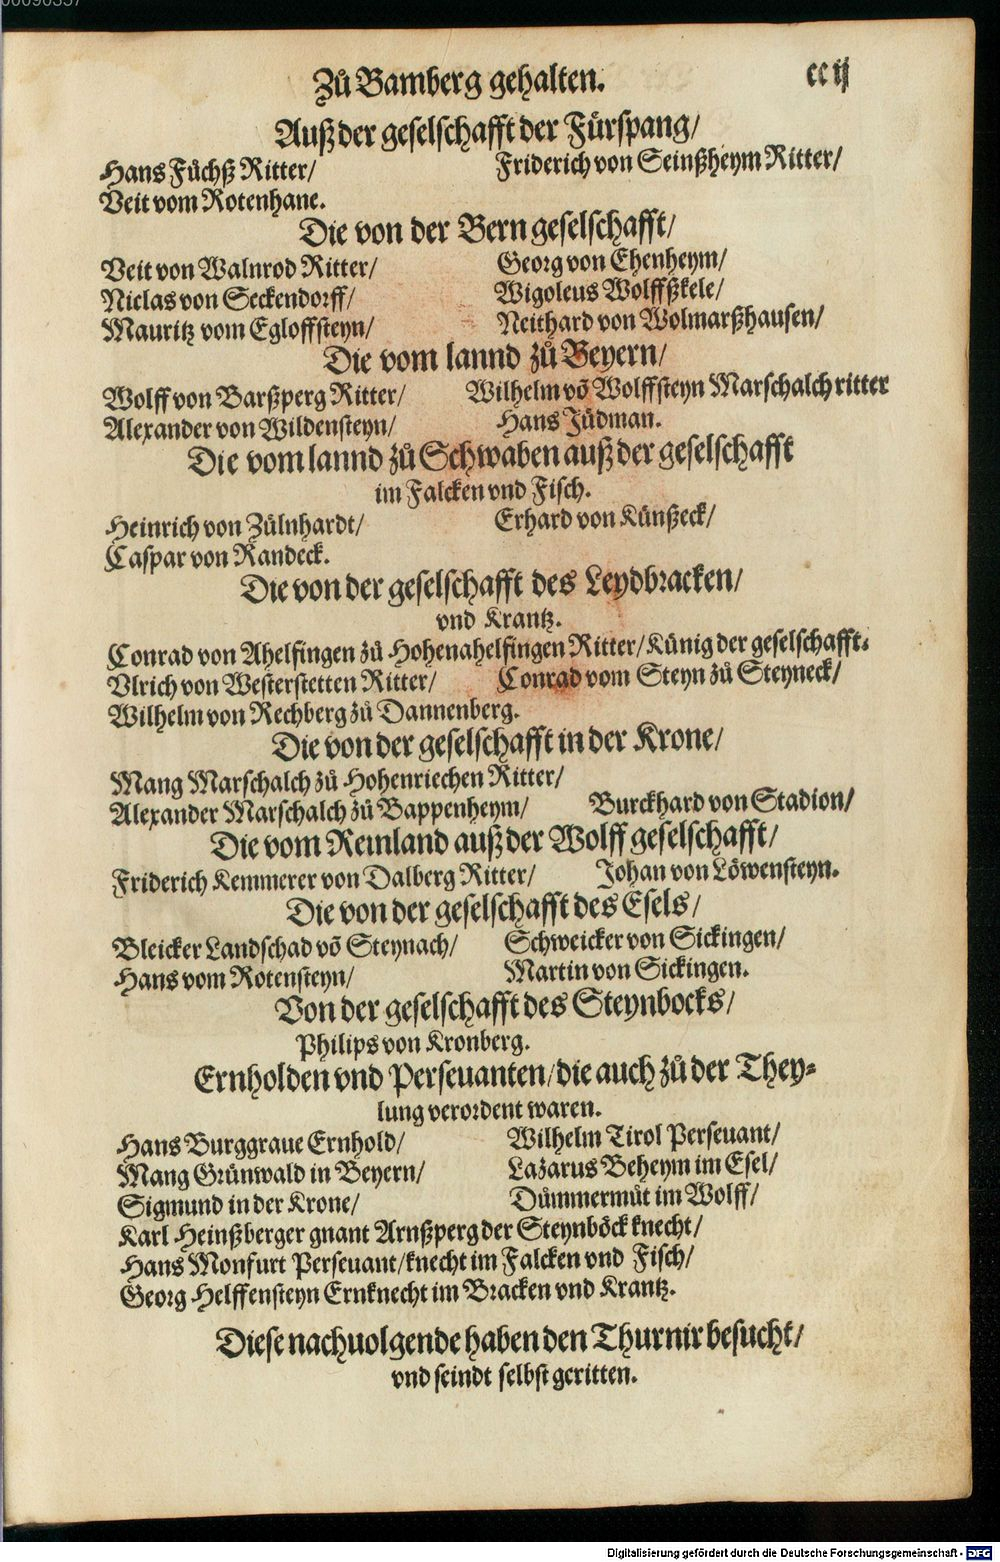 Zů Bamberg gehalten. cc ij
Auß der geselschafft der Fürspang/
Hans Füchß Ritter/ Friderich von Seinßheym Ritter/
Veit vom Rotenhane.
Die von der Bern geselschafft/
Veit von Walnrod Ritter/ Georg von Ehenheym/
Niclas von Seckendorff/ Wigoleus Wolffßkele/
Mauritz vom Egloffsteyn/ Neithard von Wolmarßhausen/
Die vom lannd zů Beyern/
Wolff von Barßperg Ritter/ Wilhelm võ Wolffsteyn Marschalch ritter
Alexander von Wildensteyn/ Hans Jüdman.
Die vom lannd zů Schwaben auß der geselschafft
im Falcken vnd Fisch.
Heinrich von Zülnhardt/ Erhard von Künßeck/
Caspar von Randeck.
Die von der geselschafft des Leydbracken/
vnd Krantz.
Conrad von Ahelfingen zů Hohenahelfingen Ritter/ Künig der geselschafft.
Vlrich von Westerstetten Ritter/ Conrad vom Steyn zů Steyneck/
Wilhelm von Rechberg zů Dannenberg.
Die von der geselschafft in der Krone/
Mang Marschalch zů Hohenriechen Ritter/
Alexander Marschalch zů Bappenheym/ Burckhard von Stadion/
Die vom Reinland auß der Wolff geselschafft/
Friderich Kemmerer von Dalberg Ritter/ Johan von Löwensteyn.
Die von der geselschafft des Esels/
Bleicker Landschad võ Steynach/ Schweicker von Sickingen/
Hans vom Rotensteyn/ Martin von Sickingen.
Von der geselschafft des Steynbocks/
Philips von Kronberg.
Ernholden vnd Perseuanten/ die auch zů der They⸗
lung verordent waren.
Hans Burggraue Ernhold/ Wilhelm Tirol Perseuant/
Mang Grünwald in Beyern/ Lazarus Beheym im Esel/
Sigmund in der Krone/ Dümmermůt im Wolff/
Karl Heinßberger gnant Arnßperg der Steynböck knecht/
Hans Monfurt Perseuant/ knecht im Falcken vnd Fisch/
Georg Helffensteyn Ernknecht im Bracken vnd Krantz.
Diese nachuolgende haben den Thurnir besucht/
vnd seindt selbst geritten.
Digitalisierung gefördert durch die Deutsche Forschungsgemeinschaft - DFG